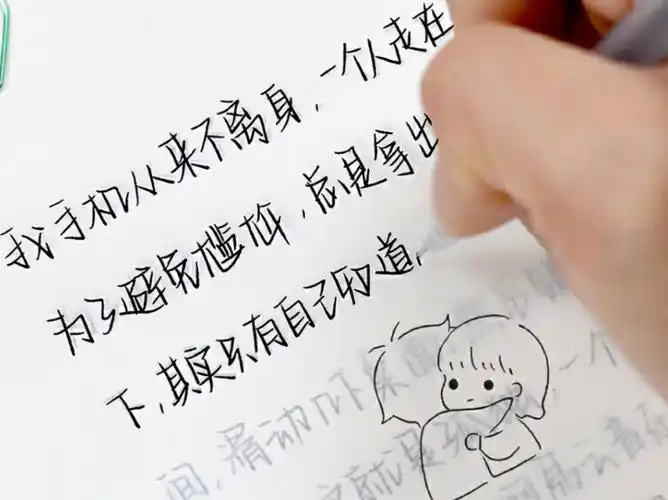 我手机从来不离身，一个人走在
为了避免尴尬，总是拿出
下，其实只有自己知道，
间，滑动几下桌面
一个